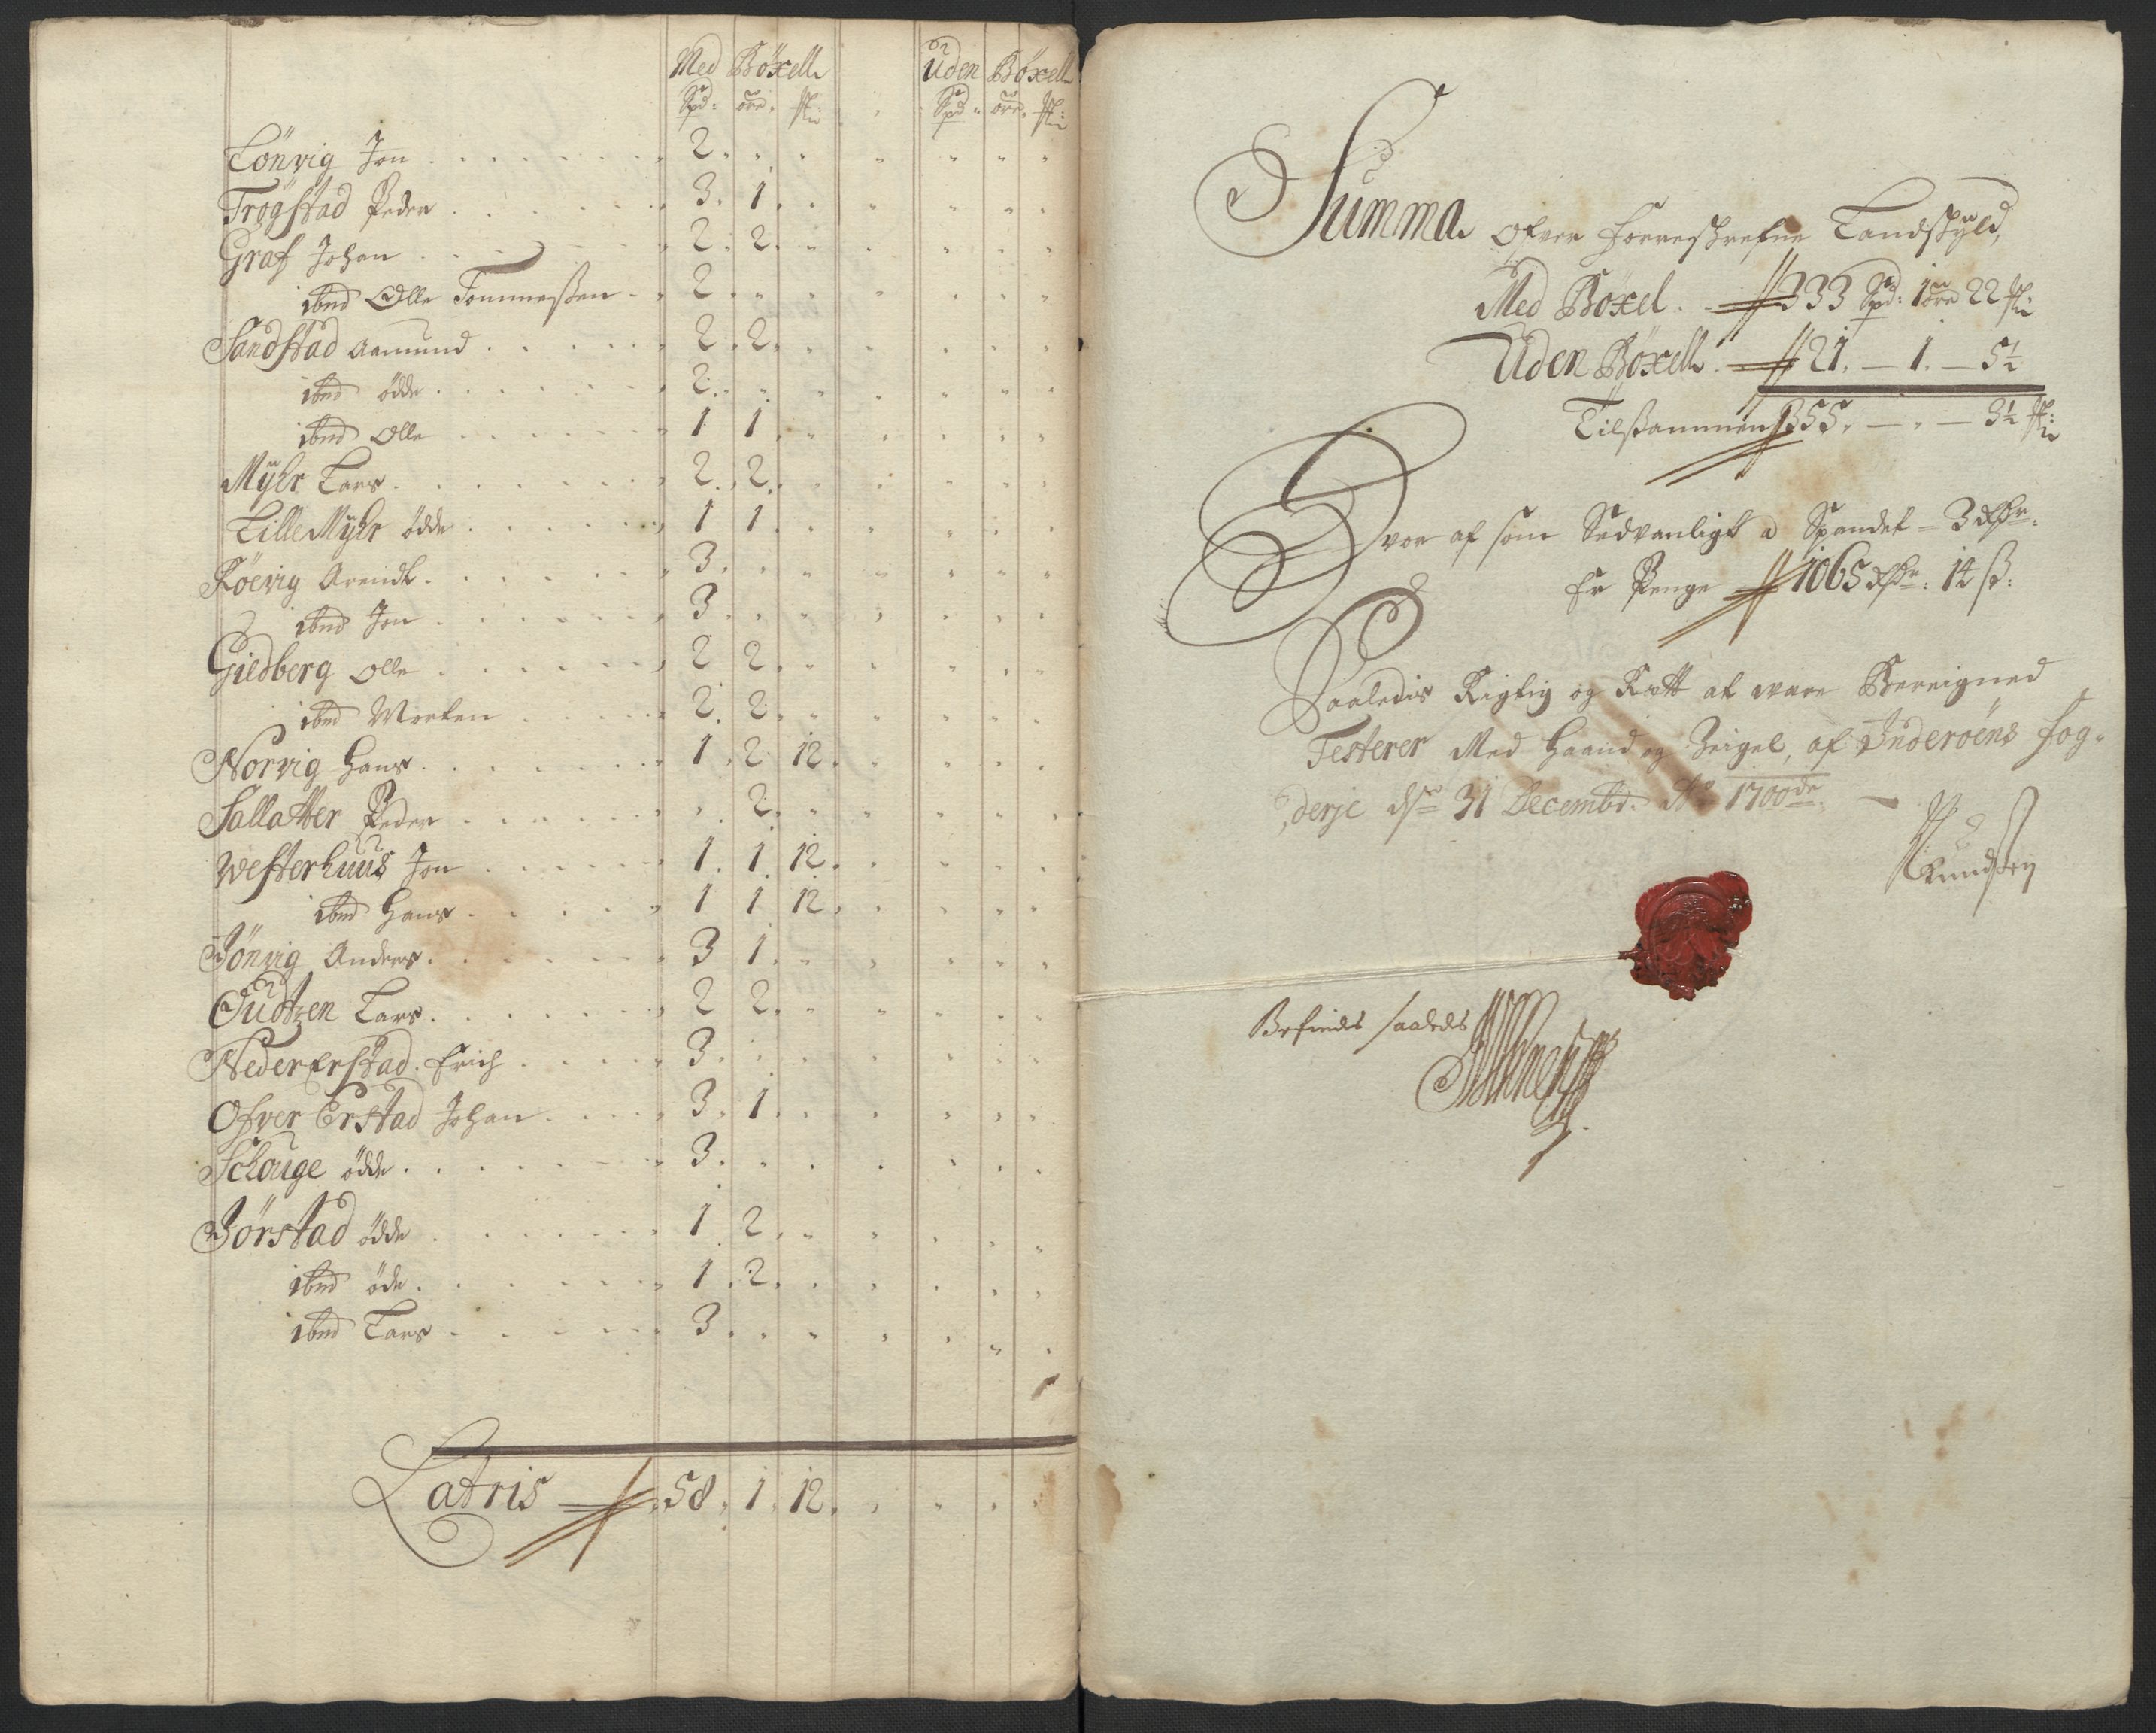 Med Böxell Uden Böxell
Spd: öre: ₰: Spd: öre: ₰:
Lönvig Jon 2
Trögstad Peder 3 1
Graf Johan 2 2
ibnd Olle Tommesßen 2
Sandstad Aamund 2 2
ibnd ödde 2
ibnd Olle 1 1
Mÿhr Lars 2 2
Lille Mÿhr ödde 1 1
Röevig Arendt 3
ibnd Jon 3
Gieldberg Olle 2 2
ibnd Morten 2 2
Norvig Hans 1 2 12
Sallatter Peder 2
Westerhuus Jon 1 1 12
ibnd Hans 1 1 12
Jönvig Anders 3 1
Oudtzen Lars 2 2
Neder Erstad Erich 3
Ofver Erstad Johan 3 1
Schouge ödde 3
Jörstad ödde 1 2
ibnd öde 1 2
ibnd Lars 3
Latris 58 1 12
Summa ofver forreskrefne Landskÿld,
Med Böxel 333 Spd: 1 öre 22 ₰:
Uden Böxell 21 – 1 – 5½
Tilsammen 355 – „ – 3½ ₰:
Hvor af som Sedvanligt a Spandet – 3 dhr:
Er Penge 1065 dhr: 14 ß:
Saaledis Rigtig og Rætt at være Bereigned
Testerer Med Haand og Zeigel, af Inderöens fog-
derje dn 31 Decembr: Ao 1700de
Knudsen
Befindes saaledes